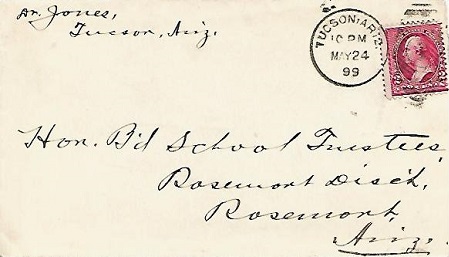 Dr. Jones,
Tucson, Ariz.
TUCSON ARIZ.
10 PM
MAY 24
99
Hon. B'd School Trustees,
Rosemont Disct,
Rosemont,
Ariz.